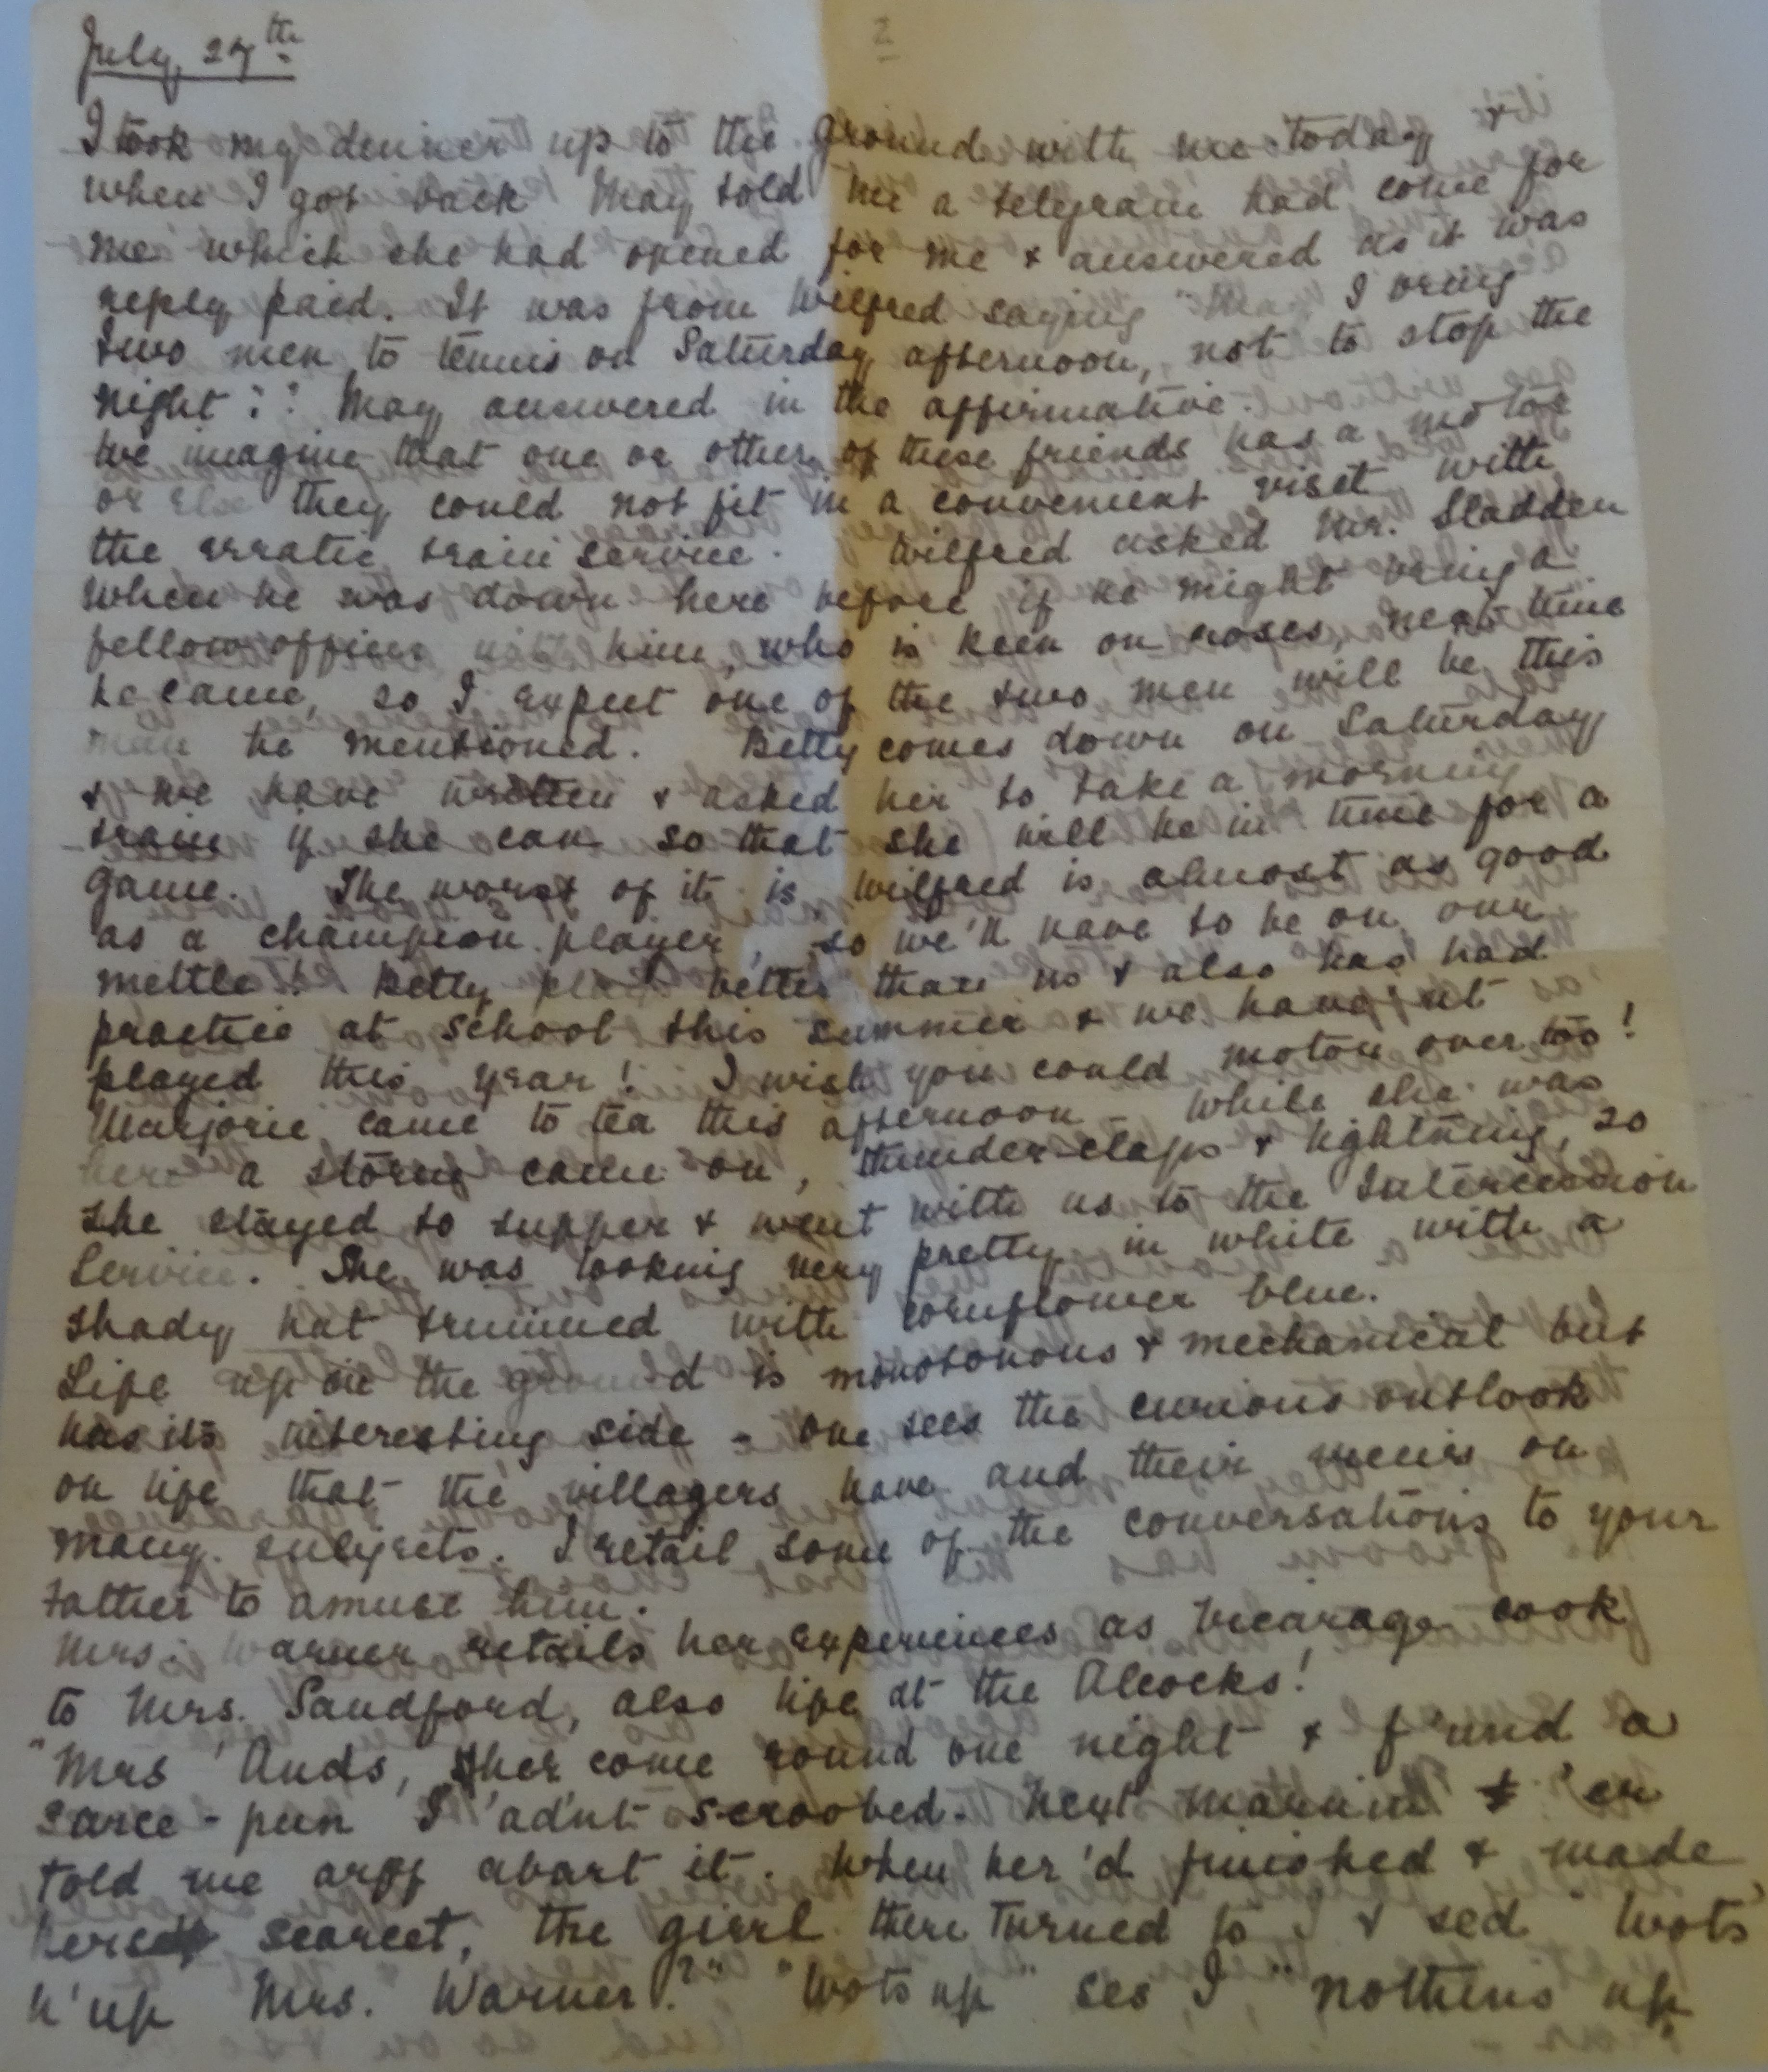 July 27th
2
I took my dinner up to the ground with me today &
when I got back May told me a telegram had come for
me which she had opened for me & answered as it was
reply paid. It was from Wilfred saying "May I bring
two men to tennis on Saturday afternoon, not to stop the
night?" May answered in the affirmative.
We imagine that one or other of these friends has a motor
or else they could not fit in a convenient visit with
the erratic train service. Wilfred asked Mr. Sladden
when he was down here before if he might bring a
fellow officer with him, who is keen on roses, next time
he came, so I expect one of the two men will be this
man he mentioned. Betty comes down on Saturday
& we have written & asked her to take a morning
train if she can so that she will be in time for a
game. The worst of it is Wilfred is almost as good
as a champion player, so we'll have to be on our
mettle! Betty plays better than us & also has had
practice at school this summer & we haven't
played this year! I wish you could motor over too!
Marjorie came to tea this afternoon - while she was
here a storm came on, thunder-claps & lightning, so
she stayed to supper & went with us to the Intercession
Service. She was looking very pretty in white with a
shady hat trimmed with cornflower blue.
Life up on the ground is monotonous & mechanical but
has its interesting side - one sees the curious outlook
on life that the villagers have and their views on
many subjects. I retail some of the conversations to your
Father to amuse him.
Mrs. Warner retails her experiences as Vicarage cook
to Mrs. Sandford, also life at the Alcocks!
"Mrs 'Ands, 'her come round one night & f'und a
sarce-pun I 'adn't scroobed. Next marnin' 'er
told me orff abart it. When her'd finished & made
herself scarcet, the girrl there turned to I & sed "Wots
h'up Mrs. Warner?" "Wots up" ses I "nothins up